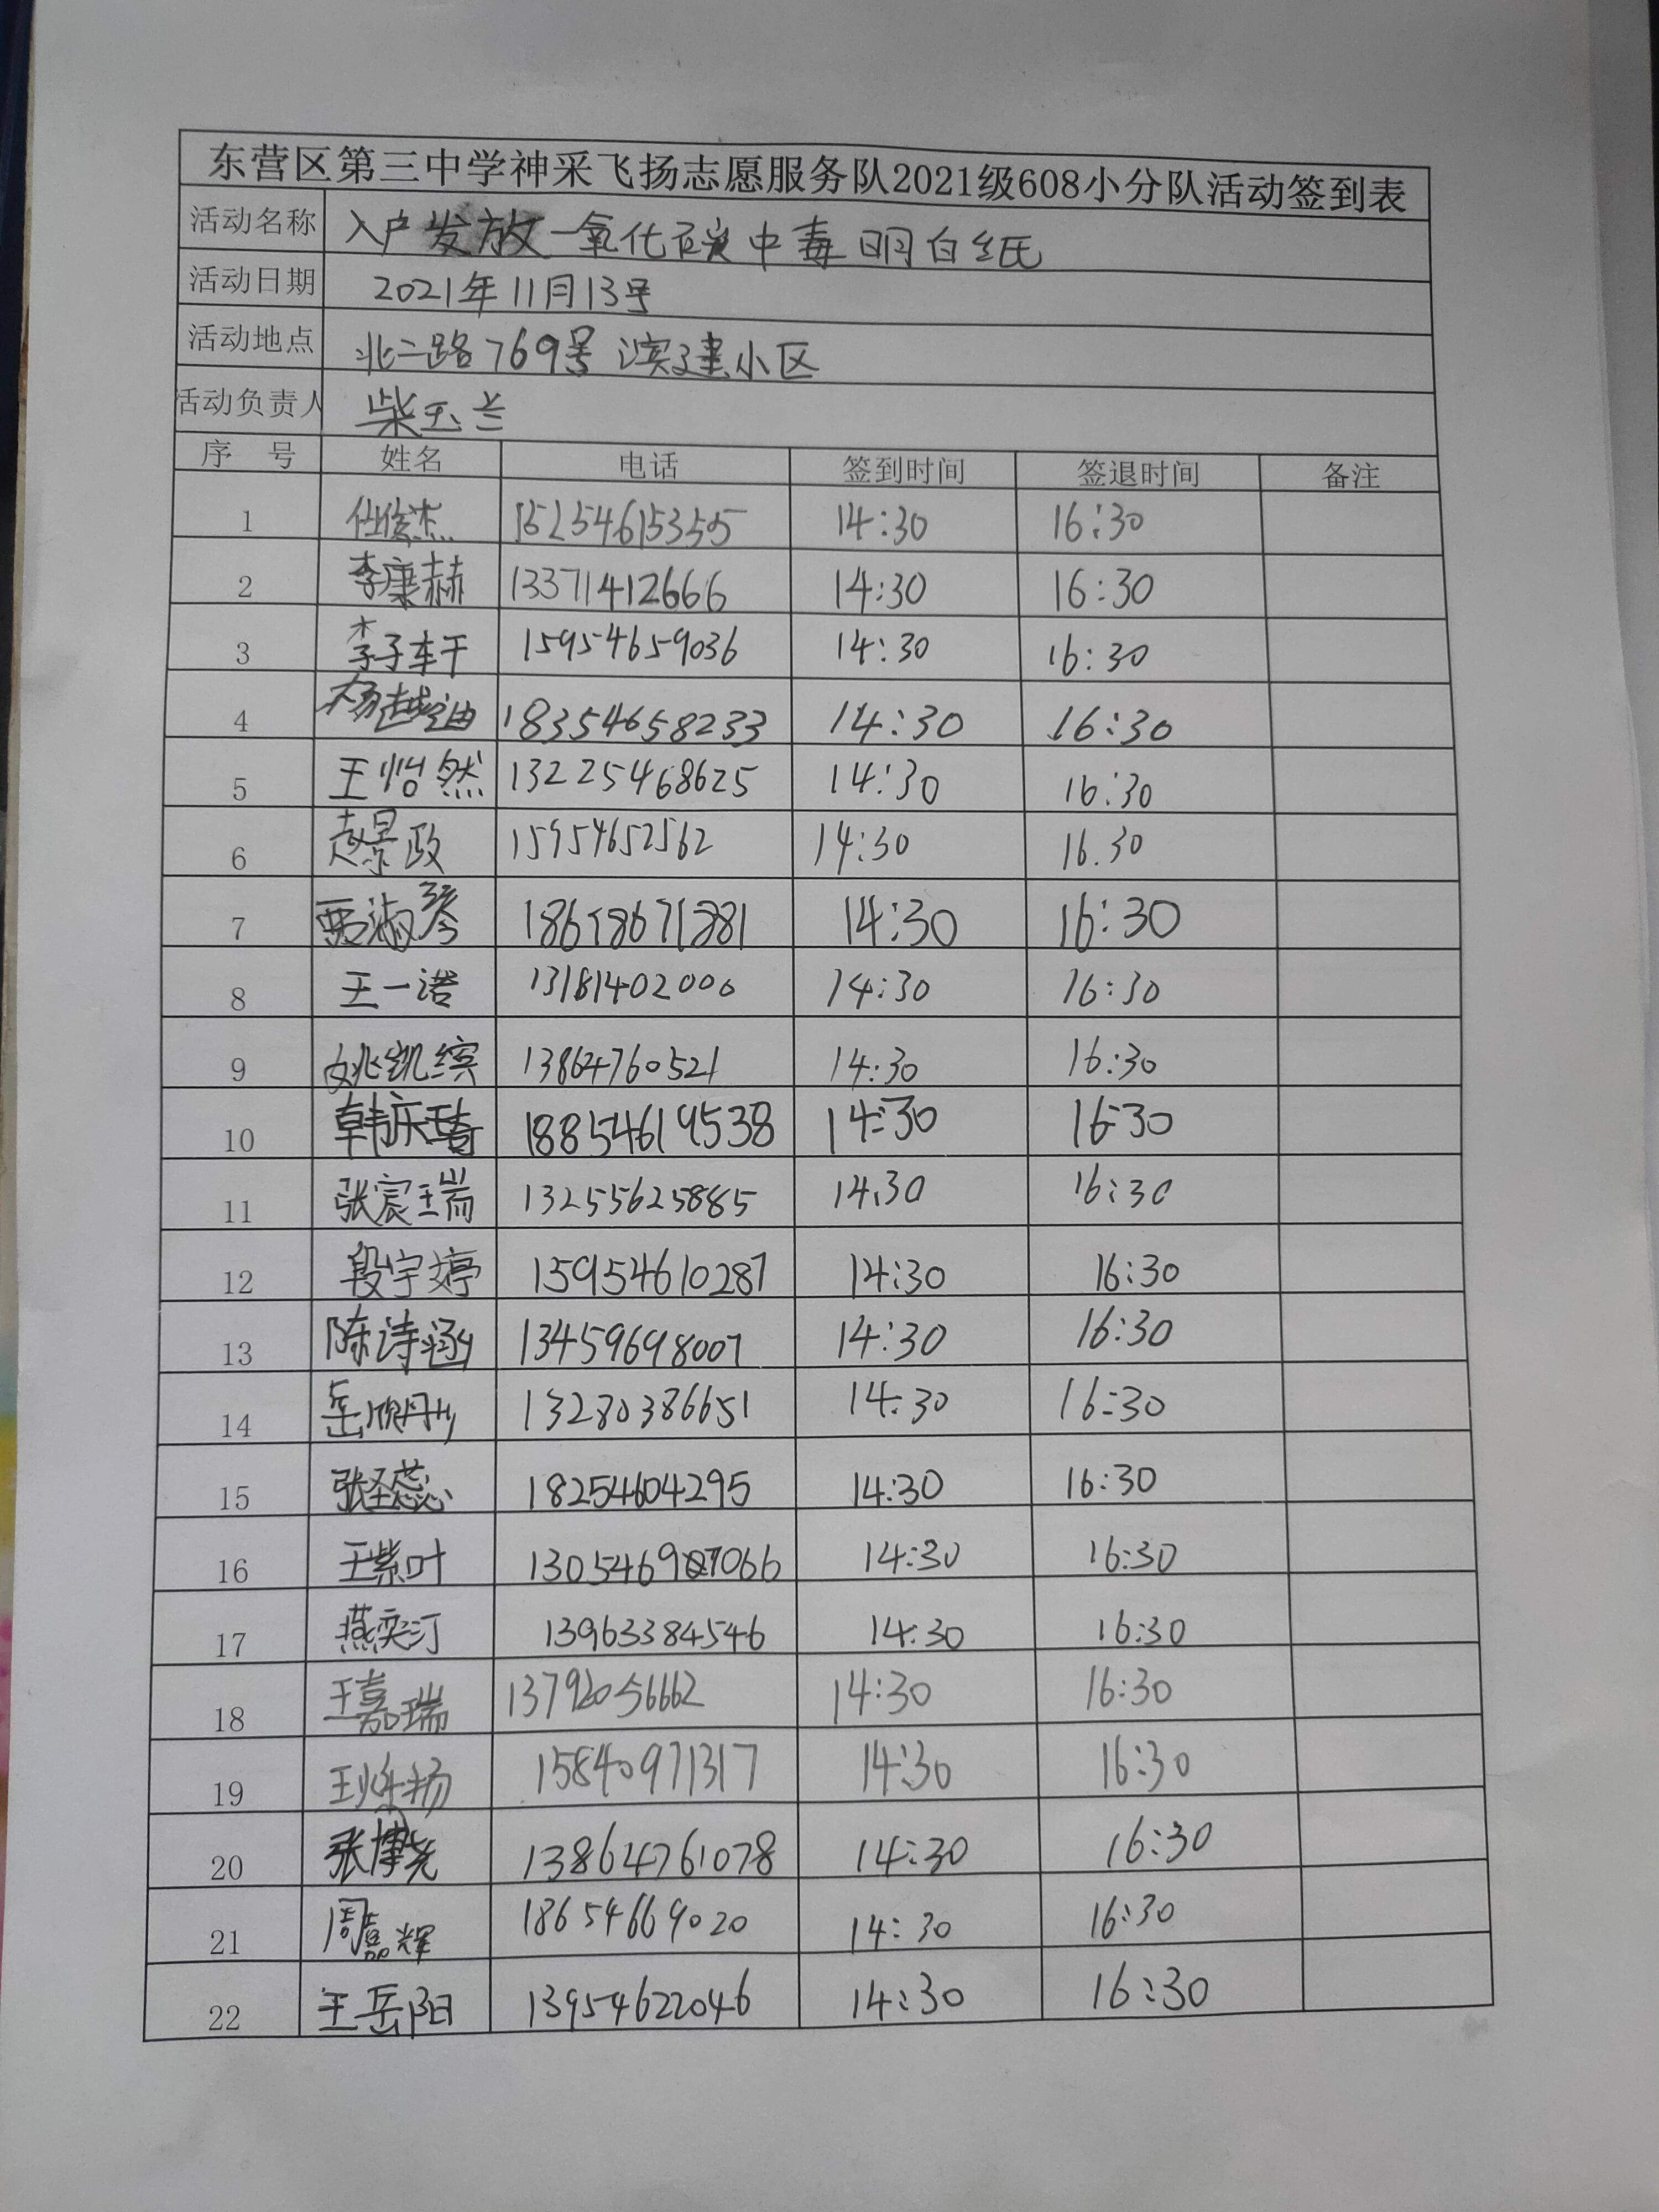 东营区第三中学神采飞扬志愿服务队2021级608小分队活动签到表
活动名称 入户发放一氧化碳中毒明白纸
活动日期 2021年11月13号
活动地点 北二路769号滨建小区
活动负责人 柴玉兰
序 号 姓名 电话 签到时间 签退时间 备注
1 仕俊杰 14:30 16:30
2 李康赫 13371412666 14:30 16:30
3 李子轩 15954659036 14:30 16:30
4 18354658233 14:30 16:30
5 王怡然 13225468625 14:30 16:30
6 赵景政 15954652562 14:30 16.30
7 贾淑琴 14:30 16:30
8 王一诺 13181402000 14:30 16:30
9 姚凯缤 13864760521 14:30 16:30
10 韩庆瑃 18854619538 14:30 16:30
11 张宸瑞 13255625885 14:30 16:30
12 段宇婷 15954610287 14:30 16:30
13 陈诗涵 13459698007 14:30 16:30
14 13280386651 14:30 16:30
15 张圣蕊 18254604295 14:30 16:30
16 王紫叶 14:30 16:30
17 燕奕汀 13963384546 14:30 16:30
18 王嘉瑞 14:30 16:30
19 王烁扬 15840971317 14:30 16:30
20 张博尧 13864761078 14:30 16:30
21 周嘉辉 18654669020 14:30 16:30
22 王岳阳 13954622046 14:30 16:30